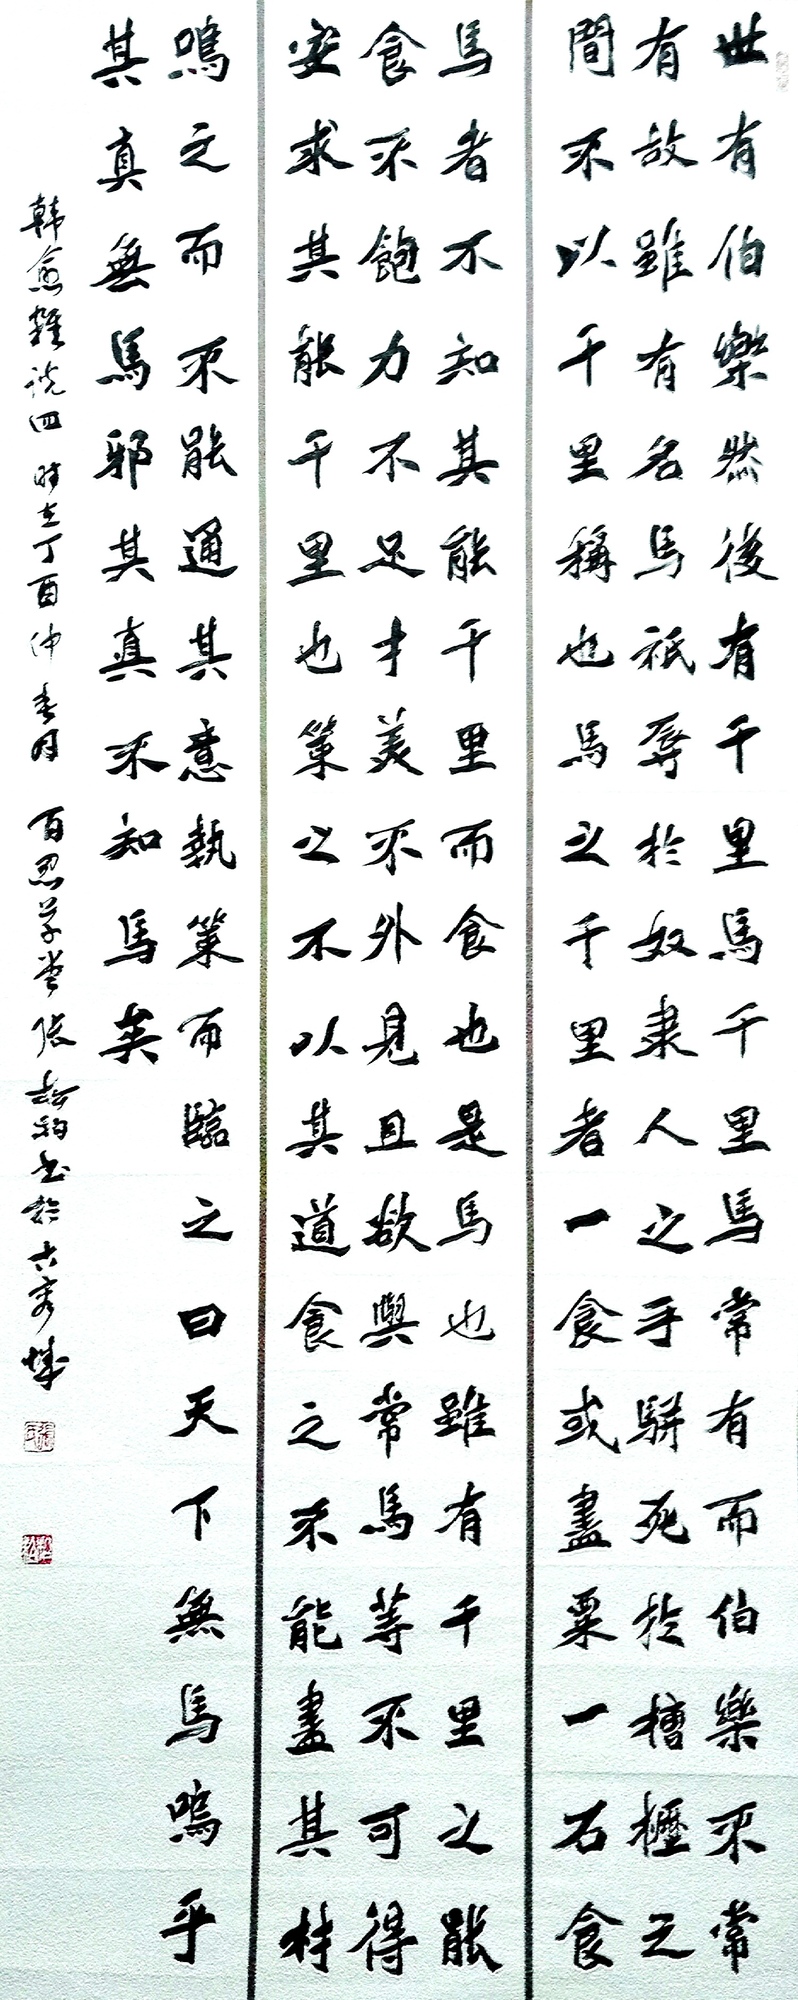 世有伯樂然後有千里馬千里馬常有而伯樂不常
有故雖有名馬祇辱於奴隶人之手駢死於槽櫪之
間不以千里稱也馬之千里者一食或盡粟一石食
馬者不知其能千里而食也是馬也雖有千里之能
食不飽力不足才美不外見且欲與常馬等不可得
安求其能千里也策之不以其道食之不能盡其材
鳴之而不能通其意執策而臨之曰天下無馬嗚乎
其真無馬邪其真不知馬矣
韓愈雜說四 時在丁酉仲春月 百忍草堂張 書於古 城